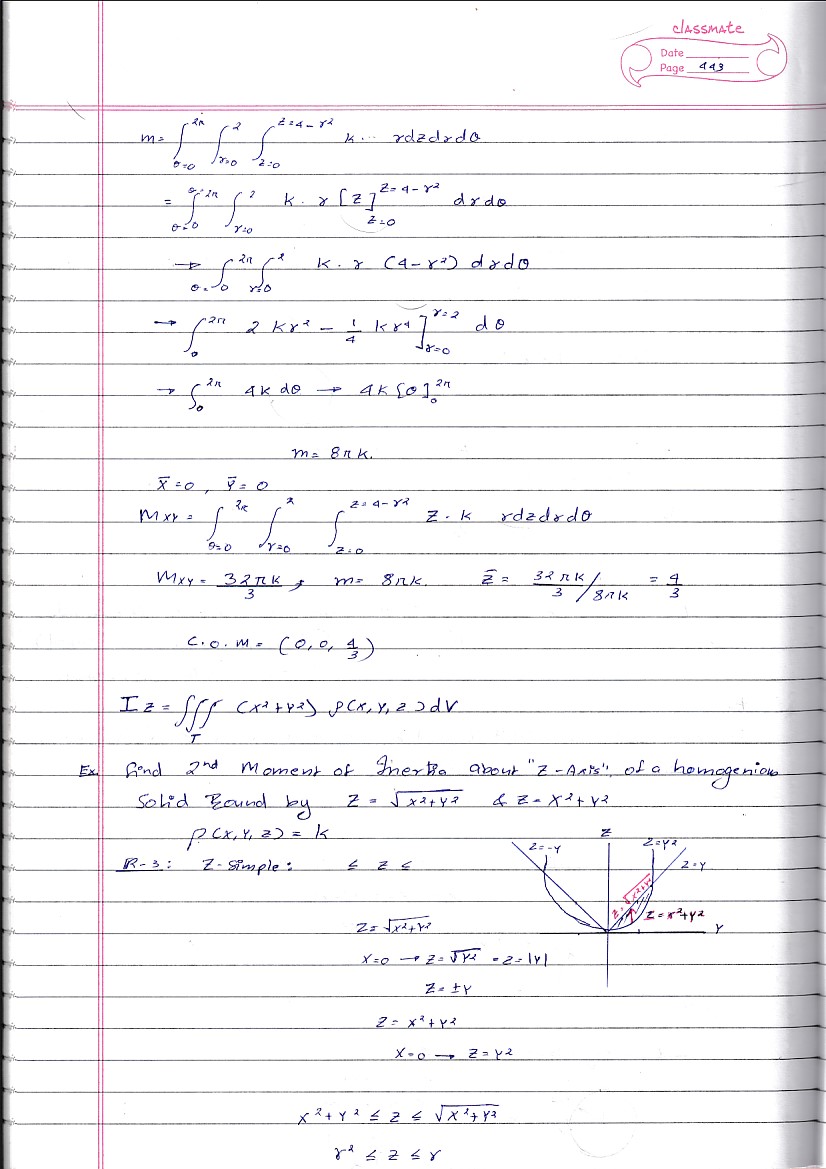 classmate
Date
Page 443
m = ∫_{θ=0}^{2π} ∫_{r=0}^{2} ∫_{z=0}^{z=4-r²} k.. rdzdrdθ
= ∫_{θ=0}^{θ=2π} ∫_{r=0}^{2} k. r [z]_{z=0}^{z=4-r²} drdθ
→ ∫_{θ=0}^{2π} ∫_{r=0}^{2} k. r (4-r²) drdθ
→ ∫_{0}^{2π} 2 kr² - 1/4 kr⁴ ]_{r=0}^{r=2} dθ
→ ∫_{0}^{2π} 4k dθ → 4k [θ]_{0}^{2π}
m = 8πk.
x̄ = 0, ȳ = 0
Mxy = ∫_{θ=0}^{2π} ∫_{r=0}^{2} ∫_{z=0}^{z=4-r²} z. k rdzdrdθ
Mxy = 32πk/3, m = 8πk. z̄ = 32πk/3 / 8πk = 4/3
C.O.M = (0, 0, 4/3)
Iz = ∫∫∫_T (x²+y²) ρ(x,y,z)dV
Ex. find 2nd Moment of Inertia about "Z-Axis", of a homogenious
solid Bound by z = √x²+y² & z = x²+y²
ρ(x,y,z) = k
R-3: Z-simple: ≤ z ≤
z
z=-y
z=y²
z=y
z=√x²+y²
z=x²+y²
y
z = √x²+y²
x=0 → z=√y² = z=|y|
z = ±y
z = x²+y²
x=0 → z=y²
x²+y² ≤ z ≤ √x²+y²
r² ≤ z ≤ r